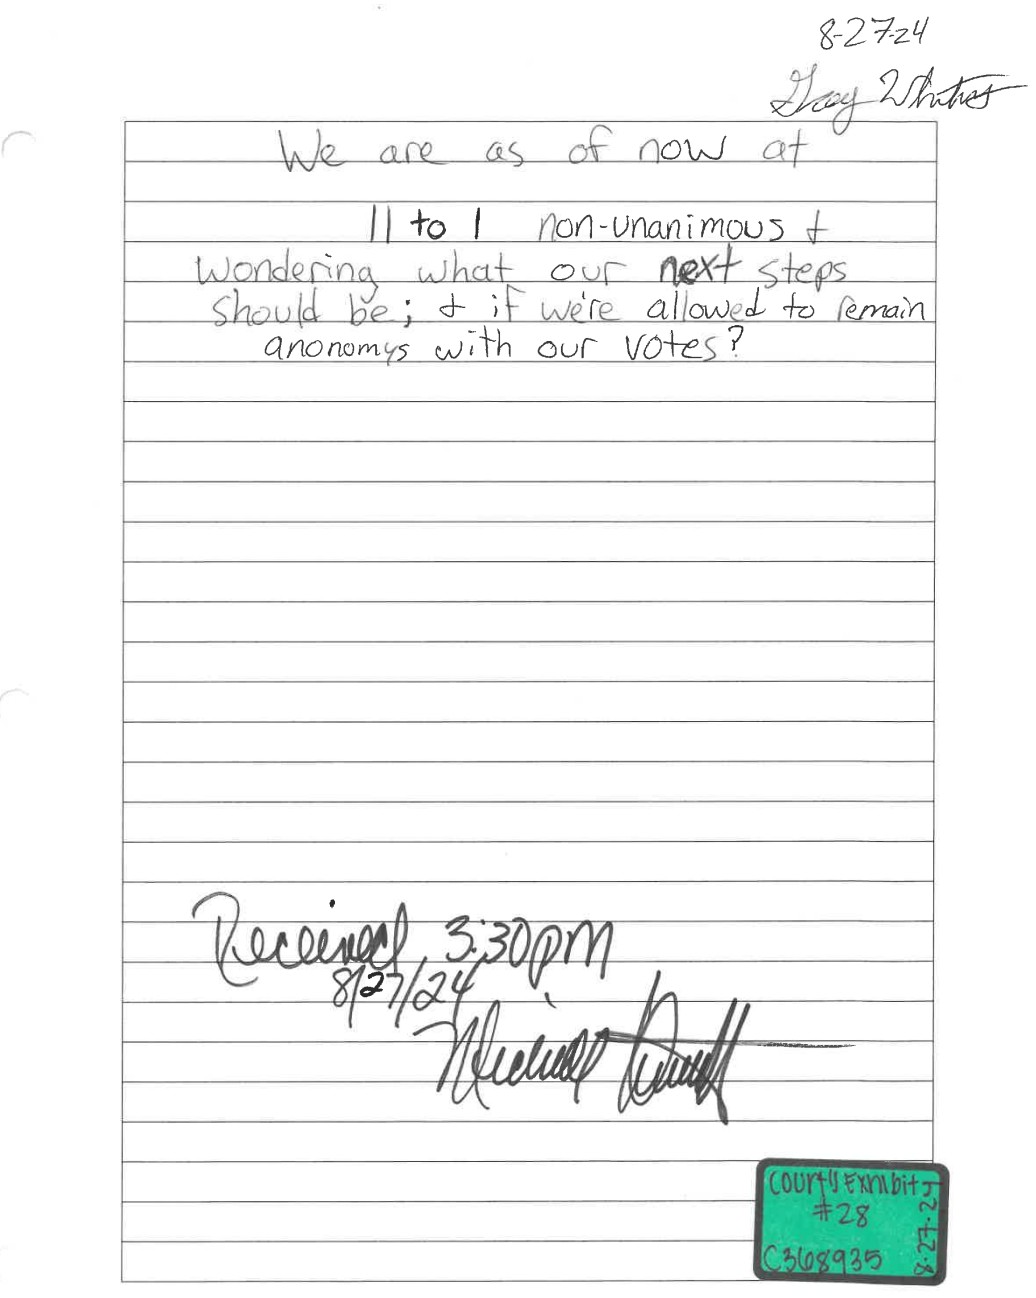 8-27-24
We are as of now at
11 to 1 non-unanimous &
wondering what our next steps
should be; & if we're allowed to remain
anonomys with our votes?
Received 3:30pm
8/27/24
Court's Exhibit
#28
C368935
8.27.24